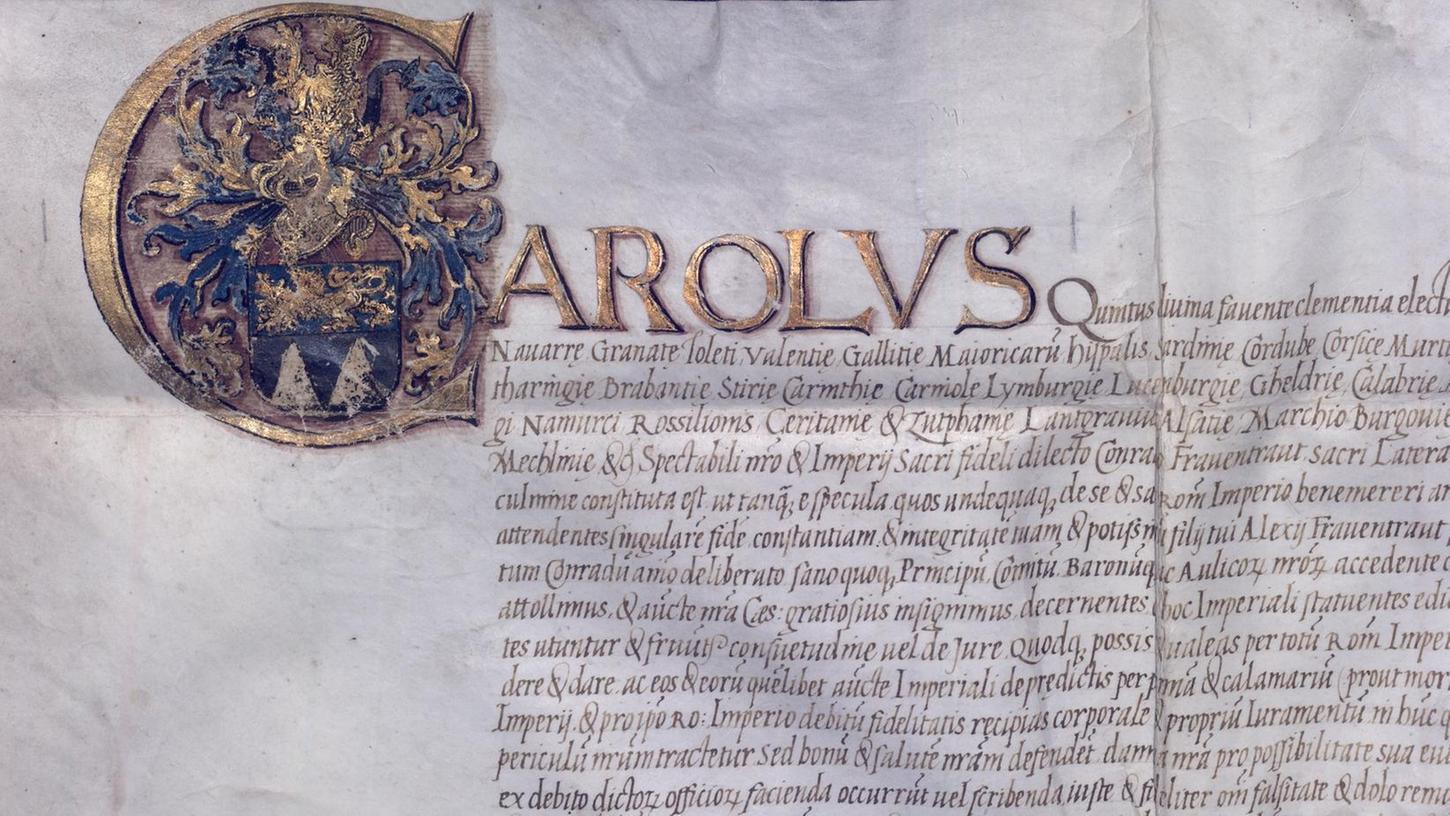 CAROLVS Quintus diuina fauente clementia elect
Nauarrę Granatę Toleti Valentię Gallitię Maioricarũ hispalis Sardinię Cordubę Corsicę Murti
tharingię Brabantię Stirię Carinthię Carniolę Lymburgię Lucenburgię Gheldrię Calabrię
gi Namurci Rossilionis Ceritanię & Zutphanię Lantgrauiu Alsatię Marchio Burgouię
Mechlinię &c̃ Spectabili nr̃o & Imperij Sacri fideli dilecto Conrado Frauentraut sacri Latera
culmine constituta est ut tanq̃ e specula quos undequaq; de se & sa Rom̃ Imperio benemereri an
attendentes singularẽ fidẽ constantiam & integritatẽ tuam & potissim filij tui Alexij Frauentraut
tum Conradũ aĩo deliberato sano quoq; Principũ Comitũ Baronũq; ac Aulicoꝝ nr̃oꝝ accedente c
attollimus & auctẽ nr̃a Cæs: gratiosius insignimus decernentes hoc Imperiali statuentes edi
tes utuntur & fruũt consuetudine uel de Jure Quodq; possis & ualeas per totũ Rom̃ Imper
dere & dare ac eos & eorũ quẽlibet auctẽ Imperiali de predictis per pennã & calamariũ prout mor
Imperij & pro ip̃o Ro: Imperio debitũ fidelitatis recipias corporale & propriũ Iuramentũ in hũc
periculũ nr̃um tractetur Sed bonũ & salutẽ nr̃am defendet damna nr̃a pro possibilitate sua eui
ex debito dictoꝝ officioꝝ facienda occurrũt uel scribenda iuste & fideliter om̃i falsitate & dolo remo